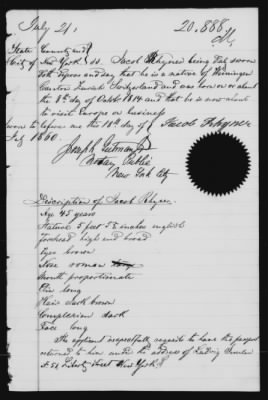 July 21,
20,888
State County and
City of New York ss. Jacob Rhyner being duly sworn
doth depose and say that he is a native of
Canton Zurich Switzerland and was born on or about
the 8th day of October 1814 and that he is now about
to visit Europe on business
Sworn to before me the 18th day of Jacob Rhyner
July 1860
Joseph Gutman Jr
Notary Public
New York City
Description of Jacob Rhyner
Age 45 years
Stature 5 feet 5 8 inches english
Forehead high and broad
Eyes brown
Nose roman
Mouth proportionate
Chin long
Hair dark brown
Complexion dark
Face long
The applicant respectfully requests to have the passport
returned to him under the address of Ludwig
at 51 Liberty Street New York